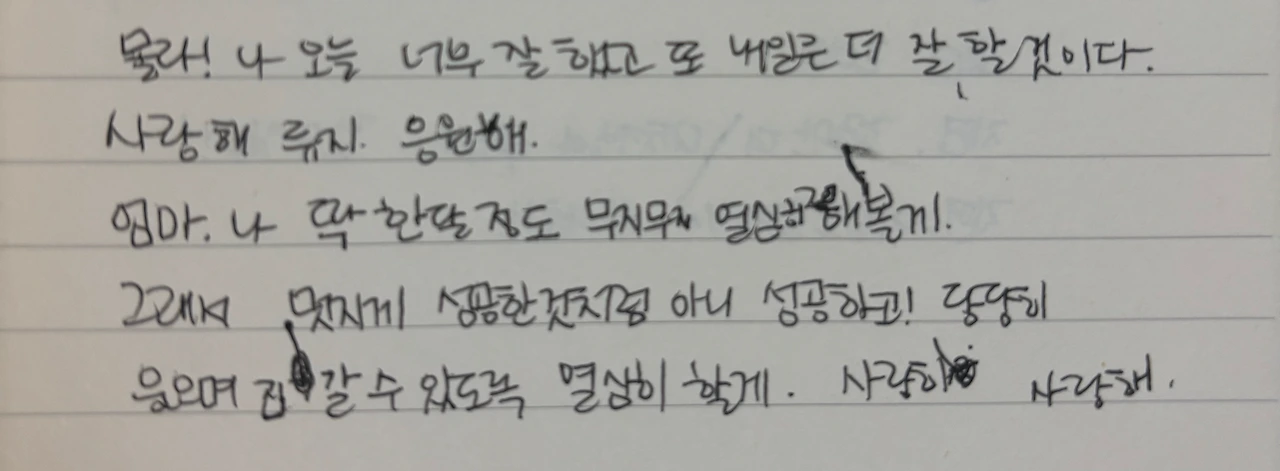 몰라! 나 오늘 너무 잘 했고 또 내일은 더 잘 할 것이다.
사랑해 류지. 응원해.
엄마. 나 딱 한달 정도 무지무지 열심히 해볼게.
그래서 멋지게 성공한것처럼 아니 성공하고! 당당히
웃으며 집 갈 수 있도록 열심히 할게. 사랑해 사랑해.